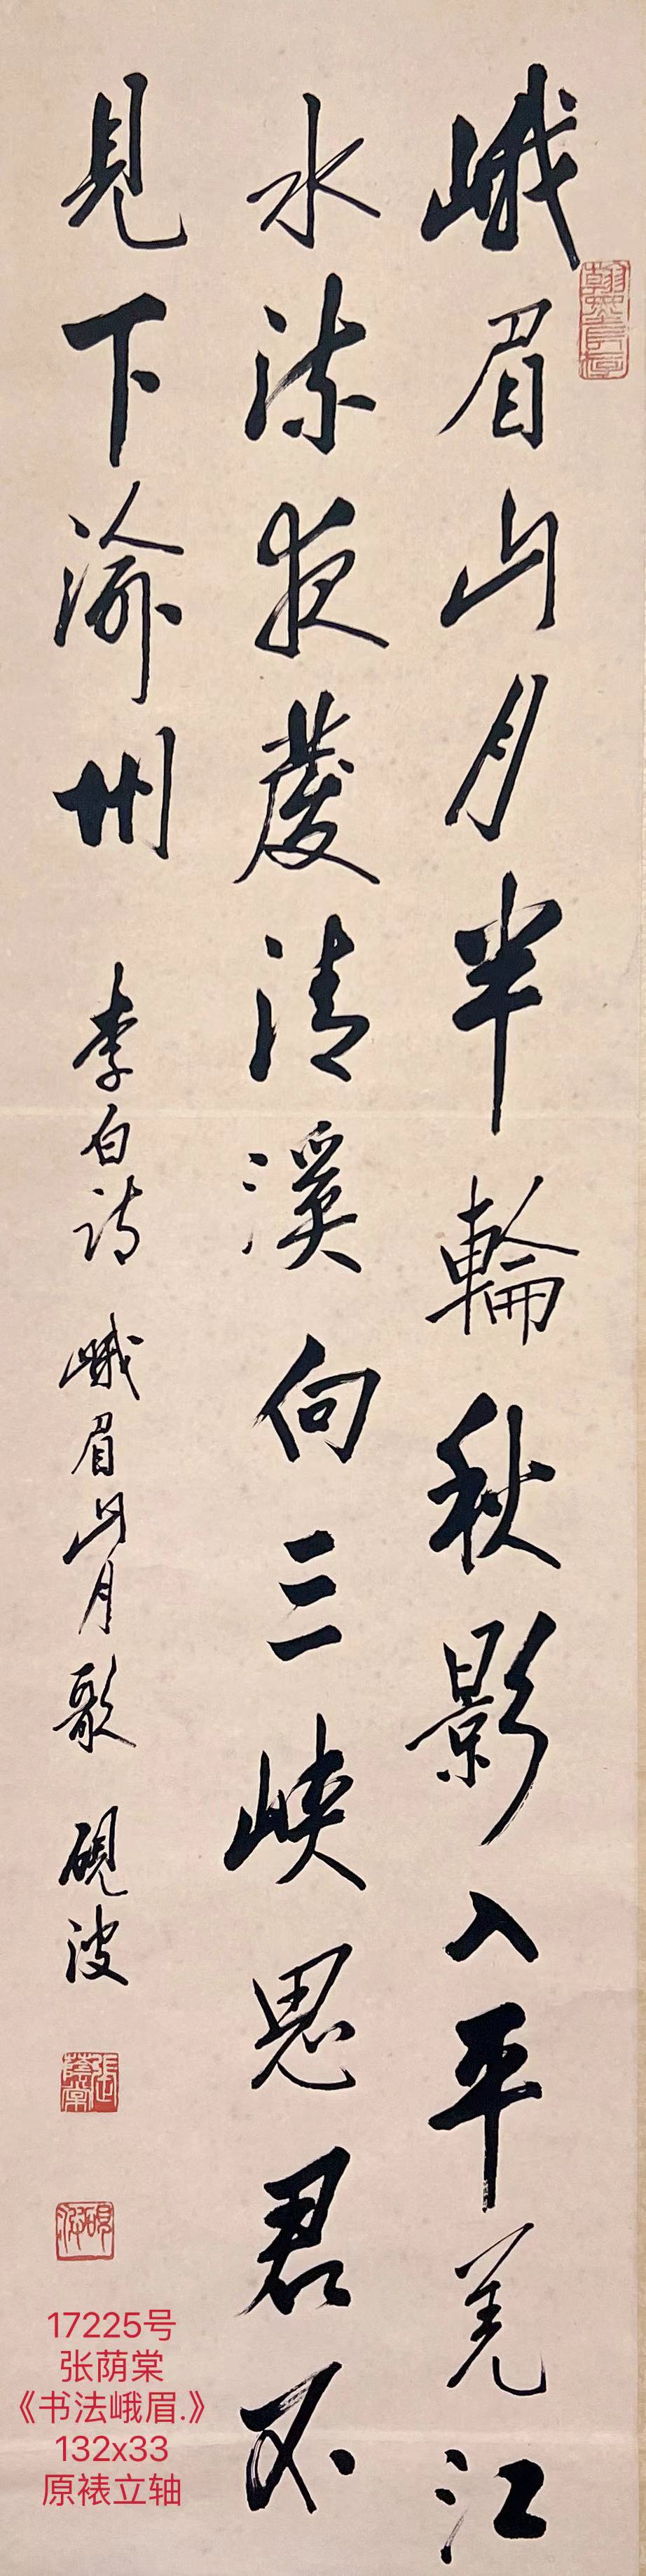 峨眉山月半輪秋影入平羌江
水流夜發清溪向三峽思君不
見下渝州
李白诗 峨眉山月歌 硯波
張蔭棠
硯波
17225号
张荫棠
《书法峨眉.》
132x33
原裱立轴